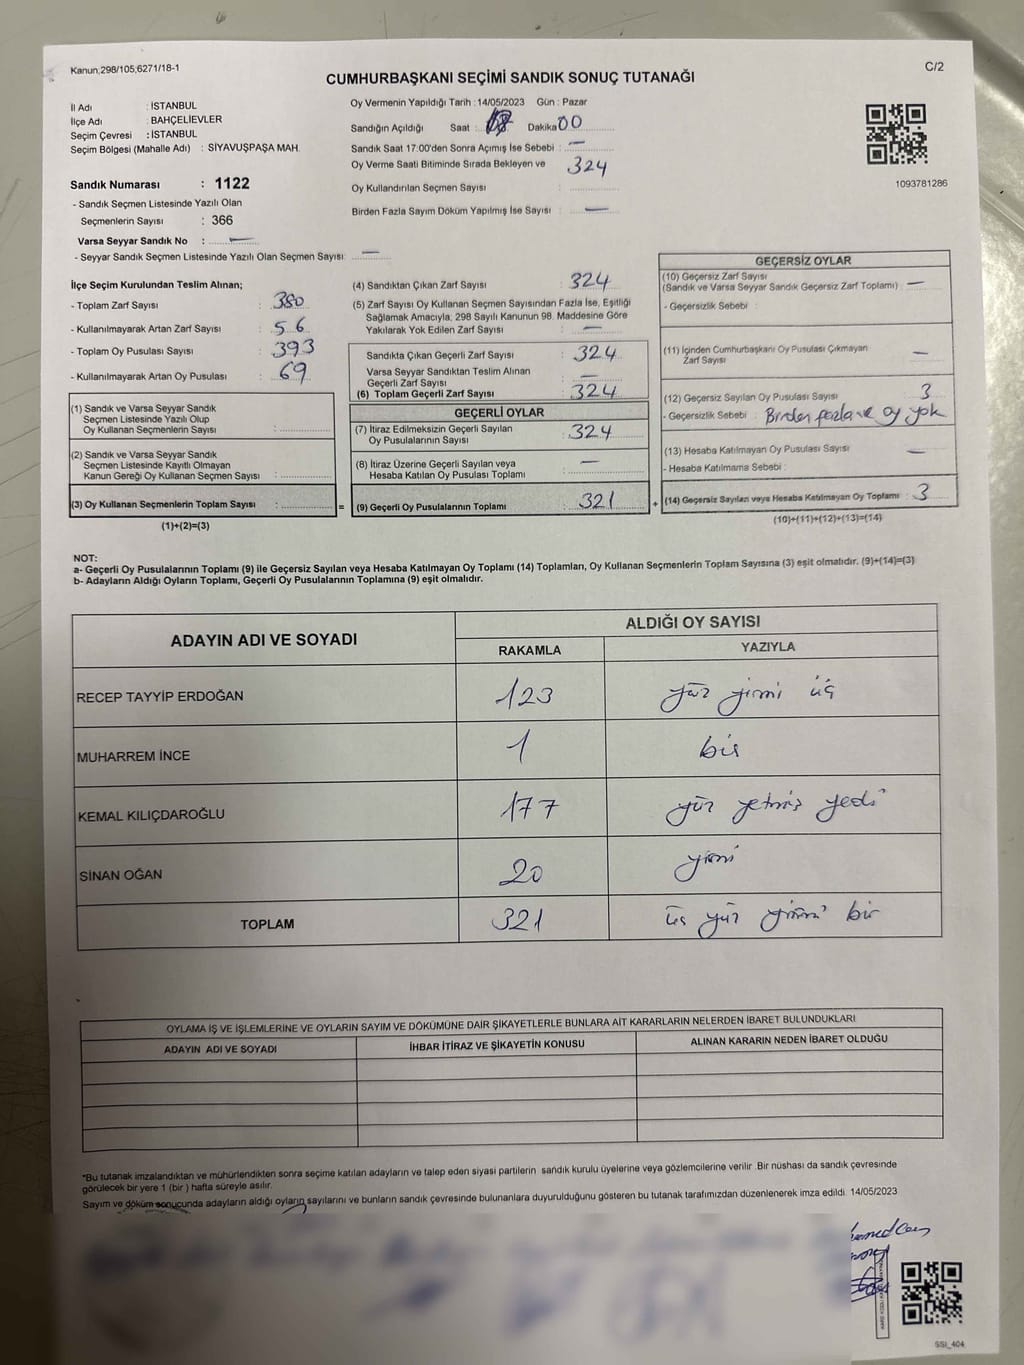 Kanun;298/105;6271/18-1
C/2
CUMHURBAŞKANI SEÇİMİ SANDIK SONUÇ TUTANAĞI
İl Adı : İSTANBUL
İlçe Adı : BAHÇELİEVLER
Seçim Çevresi : İSTANBUL
Seçim Bölgesi (Mahalle Adı) : SİYAVUŞPAŞA MAH.
Oy Vermenin Yapıldığı Tarih : 14/05/2023 Gün : Pazar
Sandığın Açıldığı Saat : 08 Dakika 00
Sandık Saat 17:00'den Sonra Açımış İse Sebebi : —
Oy Verme Saati Bitiminde Sırada Bekleyen ve 324
Oy Kullandırılan Seçmen Sayısı :
Birden Fazla Sayım Döküm Yapılmış İse Sayısı : —
1093781286
Sandık Numarası : 1122
- Sandık Seçmen Listesinde Yazılı Olan
Seçmenlerin Sayısı : 366
Varsa Seyyar Sandık No : —
- Seyyar Sandık Seçmen Listesinde Yazılı Olan Seçmen Sayısı: —
İlçe Seçim Kurulundan Teslim Alınan;
- Toplam Zarf Sayısı : 380
- Kullanılmayarak Artan Zarf Sayısı : 56
- Toplam Oy Pusulası Sayısı : 393
- Kullanılmayarak Artan Oy Pusulası : 69
(1) Sandık ve Varsa Seyyar Sandık
Seçmen Listesinde Yazılı Olup
Oy Kullanan Seçmenlerin Sayısı :
(2) Sandık ve Varsa Seyyar Sandık
Seçmen Listesinde Kayıtlı Olmayan
Kanun Gereği Oy Kullanan Seçmen Sayısı :
(3) Oy Kullanan Seçmenlerin Toplam Sayısı :
(1)+(2)=(3)
(4) Sandıktan Çıkan Zarf Sayısı : 324
(5) Zarf Sayısı Oy Kullanan Seçmen Sayısından Fazla İse, Eşitliği
Sağlamak Amacıyla, 298 Sayılı Kanunun 98. Maddesine Göre
Yakılarak Yok Edilen Zarf Sayısı : —
Sandıkta Çıkan Geçerli Zarf Sayısı : 324
Varsa Seyyar Sandıktan Teslim Alınan
Geçerli Zarf Sayısı : —
(6) Toplam Geçerli Zarf Sayısı : 324
GEÇERLİ OYLAR
(7) İtiraz Edilmeksizin Geçerli Sayılan
Oy Pusulalarının Sayısı : 324
(8) İtiraz Üzerine Geçerli Sayılan veya
Hesaba Katılan Oy Pusulası Toplamı : —
= (9) Geçerli Oy Pusulalarının Toplamı : 321 +
GEÇERSİZ OYLAR
(10) Geçersiz Zarf Sayısı
(Sandık ve Varsa Seyyar Sandık Geçersiz Zarf Toplamı) : —
- Geçersizlik Sebebi :
(11) İçinden Cumhurbaşkanı Oy Pusulası Çıkmayan
Zarf Sayısı : —
(12) Geçersiz Sayılan Oy Pusulası Sayısı : 3
- Geçersizlik Sebebi : Birden fazla ve oy yok
(13) Hesaba Katılmayan Oy Pusulası Sayısı : —
- Hesaba Katılmama Sebebi :
(14) Geçersiz Sayılan veya Hesaba Katılmayan Oy Toplamı : 3
(10)+(11)+(12)+(13)=(14)
NOT:
a- Geçerli Oy Pusulalarının Toplamı (9) ile Geçersiz Sayılan veya Hesaba Katılmayan Oy Toplamı (14) Toplamları, Oy Kullanan Seçmenlerin Toplam Sayısına (3) eşit olmalıdır. (9)+(14)=(3)
b- Adayların Aldığı Oyların Toplamı, Geçerli Oy Pusulalarının Toplamına (9) eşit olmalıdır.
ADAYIN ADI VE SOYADI ALDIĞI OY SAYISI
RAKAMLA YAZIYLA
RECEP TAYYİP ERDOĞAN 123 yüz yirmi üç
MUHARREM İNCE 1 bir
KEMAL KILIÇDAROĞLU 177 yüz yetmiş yedi
SİNAN OĞAN 20 yirmi
TOPLAM 321 üç yüz yirmi bir
OYLAMA İŞ VE İŞLEMLERİNE VE OYLARIN SAYIM VE DÖKÜMÜNE DAİR ŞİKAYETLERLE BUNLARA AİT KARARLARIN NELERDEN İBARET BULUNDUKLARI
ADAYIN ADI VE SOYADI İHBAR İTİRAZ VE ŞİKAYETİN KONUSU ALINAN KARARIN NEDEN İBARET OLDUĞU
*Bu tutanak imzalandıktan ve mühürlendikten sonra seçime katılan adayların ve talep eden siyasi partilerin sandık kurulu üyelerine veya gözlemcilerine verilir. Bir nüshası da sandık çevresinde
görülecek bir yere 1 (bir) hafta süreyle asılır.
Sayım ve döküm sonucunda adayların aldığı oyların sayılarını ve bunların sandık çevresinde bulunanlara duyurulduğunu gösteren bu tutanak tarafımızdan düzenlenerek imza edildi. 14/05/2023
SSI_404